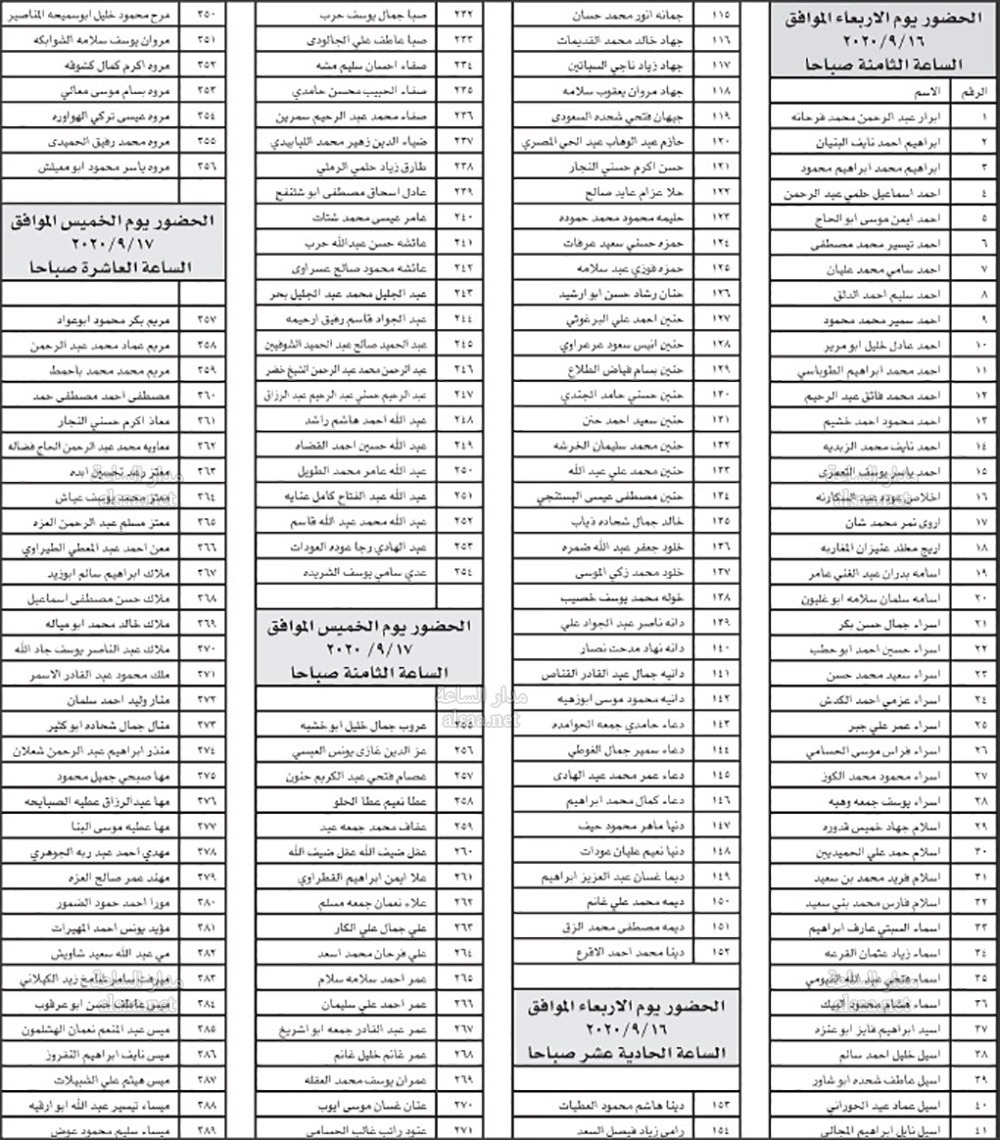 الحضور يوم الاربعاء الموافق
٢٠٢٠/٩/١٦
الساعة الثامنة صباحا
الرقم الاسم
١ ابرار عبد الرحمن محمد فرحانه
٢ ابراهيم احمد نايف البنيان
٣ ابراهيم محمد ابراهيم محمود
٤ احمد اسماعيل حلمي عبد الرحمن
٥ احمد ايمن موسى ابو الحاج
٦ احمد تيسير محمد مصطفى
٧ احمد سامي محمد عليان
٨ احمد سليم احمد الدلق
٩ احمد سمير محمد محمود
١٠ احمد عادل خليل ابو مرير
١١ احمد محمد ابراهيم الطوباسي
١٢ احمد محمد فائق عبد الرحيم
١٣ احمد محمود احمد خشيم
١٤ احمد نايف محمد الزبديه
١٥ احمد ياسر يوسف النعمري
١٦ اخلاص عوده عبد السكارنه
١٧ اروى نمر محمد شان
١٨ اريج مخلد عنيزان المغاربه
١٩ اسامه بدران عبد الغني عامر
٢٠ اسامه سلمان سلامه ابو غليون
٢١ اسراء جمال حسن بكر
٢٢ اسراء حسين احمد ابو حطب
٢٣ اسراء سعيد محمد حسن
٢٤ اسراء عزمي احمد الكدش
٢٥ اسراء عمر علي جبر
٢٦ اسراء فراس موسى الحسامي
٢٧ اسراء محمود محمد الكوز
٢٨ اسراء يوسف جمعه وهبه
٢٩ اسلام جهاد خميس قدوره
٣٠ اسلام حمد علي الحميديين
٣١ اسلام فريد محمد بن سعيد
٣٢ اسلام فارس محمد بني سعيد
٣٣ اسماء السبتي عارف ابراهيم
٣٤ اسماء زياد عثمان القرعه
٣٥ اسماء فتحي عبد الله الفيومي
٣٦ اسماء هشام محمود البيك
٣٧ اسيد ابراهيم فايز ابو عنزه
٣٨ اسيل خليل احمد سالم
٣٩ اسيل عاطف شحده ابو شاور
٤٠ اسيل عماد عيد الحوراني
٤١ اسيل نايل ابراهيم المجالي
١١٥ جمانه انور محمد حسان
١١٦ جهاد خالد محمد القديمات
١١٧ جهاد زياد ناجي السباتين
١١٨ جهاد مروان يعقوب سلامه
١١٩ جيهان فتحي شحده السعودى
١٢٠ حازم عبد الوهاب عبد الحي المصري
١٢١ حسن اكرم حسني النجار
١٢٢ حلا عزام عابد صالح
١٢٣ حليمه محمود محمد حموده
١٢٤ حمزه حسني سعيد عرفات
١٢٥ حمزه فوزي عبد سلامه
١٢٦ حنان رشاد حسن ابو ارشيد
١٢٧ حنين احمد علي البرغوثي
١٢٨ حنين انيس سعود عرعراوي
١٢٩ حنين بسام فياض الطلاع
١٣٠ حنين حسني حامد الجندي
١٣١ حنين سعيد احمد حنن
١٣٢ حنين محمد سليمان الخرشه
١٣٣ حنين محمد علي عبد الله
١٣٤ حنين مصطفى عيسى البستنجي
١٣٥ خالد جمال شحاده ذياب
١٣٦ خلود جعفر عبد الله ضمره
١٣٧ خلود محمد زكي الموسى
١٣٨ خوله محمد يوسف خصيب
١٣٩ دانه ناصر عبد الجواد علي
١٤٠ دانه نهاد مدحت نصار
١٤١ دانيه جمال عبد القادر القناص
١٤٢ دانيه محمود موسى ابوزهيه
١٤٣ دعاء حامدي جمعه الحوامده
١٤٤ دعاء سمير جمال الغوطي
١٤٥ دعاء عمر محمد عبد الهادى
١٤٦ دعاء كمال محمد ابراهيم
١٤٧ دنيا ماهر محمود حيف
١٤٨ دنيا نعيم عليان عودات
١٤٩ ديما غسان عبد العزيز ابراهيم
١٥٠ ديمه محمد علي غانم
١٥١ ديمه مصطفى محمد الزق
١٥٢ دينا محمد احمد الاقرع
الحضور يوم الاربعاء الموافق
٢٠٢٠/٩/١٦
الساعة الحادية عشر صباحا
١٥٣ دينا هاشم محمود العطيات
١٥٤ رامي زياد فيصل السعد
٢٣٢ صبا جمال يوسف حرب
٢٣٣ صبا عاطف علي الجالودى
٢٣٤ صفاء احسان سليم مشه
٢٣٥ صفاء الحبيب محسن حامدي
٢٣٦ صفاء محمد عبد الرحيم سمرين
٢٣٧ ضياء الدين زهير محمد اللبابيدي
٢٣٨ طارق زياد حلمي الرملي
٢٣٩ عادل اسحاق مصطفى ابو شنفح
٢٤٠ عامر عيسى محمد شتات
٢٤١ عائشه حسن عبدالله حرب
٢٤٢ عائشه محمود صالح عسراوى
٢٤٣ عبد الجليل محمد عبد الجليل بحر
٢٤٤ عبد الجواد قاسم رفيق ارحيمه
٢٤٥ عبد الحميد صالح عبد الحميد الشوفيين
٢٤٦ عبد الرحمن محمد عبد الرحمن الشيخ خضر
٢٤٧ عبد الرحيم حسني عبد الرحيم عبد الرزاق
٢٤٨ عبد الله احمد هاشم راشد
٢٤٩ عبد الله حسين احمد القضاه
٢٥٠ عبد الله عامر محمد الطويل
٢٥١ عبد الله عبد الفتاح كامل عنابه
٢٥٢ عبد الله محمد عبد الله قاسم
٢٥٣ عبد الهادي رجا عوده العودات
٢٥٤ عدي سامي يوسف الشريده
الحضور يوم الخميس الموافق
٢٠٢٠/٩/١٧
الساعة الثامنة صباحا
٢٥٥ عروب جمال خليل ابو خشبه
٢٥٦ عز الدين غازى يونس العبسي
٢٥٧ عصام فتحي عبد الكريم حنون
٢٥٨ عطا نعيم عطا الحلو
٢٥٩ عفاف محمد جمعه عيد
٢٦٠ عقل ضيف الله عقل ضيف الله
٢٦١ علا ايمن ابراهيم القطراوي
٢٦٢ علاء نعمان جمعه مسلم
٢٦٣ علي جمال علي الكار
٢٦٤ علي فرحان محمد اسعد
٢٦٥ عمر احمد سلامه سلام
٢٦٦ عمر احمد علي سليمان
٢٦٧ عمر عبد القادر جمعه ابو اشريخ
٢٦٨ عمر غانم خليل غانم
٢٦٩ عمران يوسف محمد العقله
٢٧٠ عنان غسان موسى ايوب
٢٧١ عنود راتب غالب الحسامي
٣٥٠ مرح محمود خليل ابوسميحه المناصير
٣٥١ مروان يوسف سلامه الشوابكه
٣٥٢ مروه اكرم كمال كشوفه
٣٥٣ مروه بسام موسى معالي
٣٥٤ مروه عيسى تركي الهواوره
٣٥٥ مروه محمد رفيق الحميدى
٣٥٦ مروه ياسر محمود ابو معيلش
الحضور يوم الخميس الموافق
٢٠٢٠/٩/١٧
الساعة العاشرة صباحا
٣٥٧ مريم بكر محمود ابوعواد
٣٥٨ مريم عماد محمد عبد الرحمن
٣٥٩ مريم محمد محمد باحمط
٣٦٠ مصطفى احمد مصطفى حمد
٣٦١ معاذ اكرم حسني النجار
٣٦٢ معاويه محمد عبد الرحمن الحاج فضاله
٣٦٣ معتز رعد تحسين ابده
٣٦٤ معتز محمد يوسف عياش
٣٦٥ معتز مسلم عبد الرحمن العزه
٣٦٦ معن احمد عبد المعطي الطيراوي
٣٦٧ ملاك ابراهيم سالم ابوزيد
٣٦٨ ملاك حسن مصطفى اسماعيل
٣٦٩ ملاك خالد محمد ابو مياله
٣٧٠ ملاك عبد الناصر يوسف جاد الله
٣٧١ ملك محمود عبد القادر الاسمر
٣٧٢ منار وليد احمد سلمان
٣٧٣ منال جمال شحاده ابو كثير
٣٧٤ منذر ابراهيم عبد الرحمن شعلان
٣٧٥ مها صبحي جميل محمود
٣٧٦ مها عبدالرزاق عطيه الصبايحه
٣٧٧ مها عطيه موسى البنا
٣٧٨ مهدي احمد عبد ربه الجوهري
٣٧٩ مهند عمر صالح العزه
٣٨٠ مورا احمد حمود الضمور
٣٨١ مؤيد يونس احمد المهيرات
٣٨٢ مي عبد الله سعيد شاويش
٣٨٣ ميرفت سامر سامح زيد الكيلاني
٣٨٤ ميس عاطف حسن ابو عرقوب
٣٨٥ ميس عبد المنعم نعمان الهشلمون
٣٨٦ ميس نايف ابراهيم النفروز
٣٨٧ ميس هيثم علي الشبيلات
٣٨٨ ميساء تيسير عبد الله ابو ارقيه
٣٨٩ ميساء سليم محمود عوض
مدار الساعة
alsaa.net